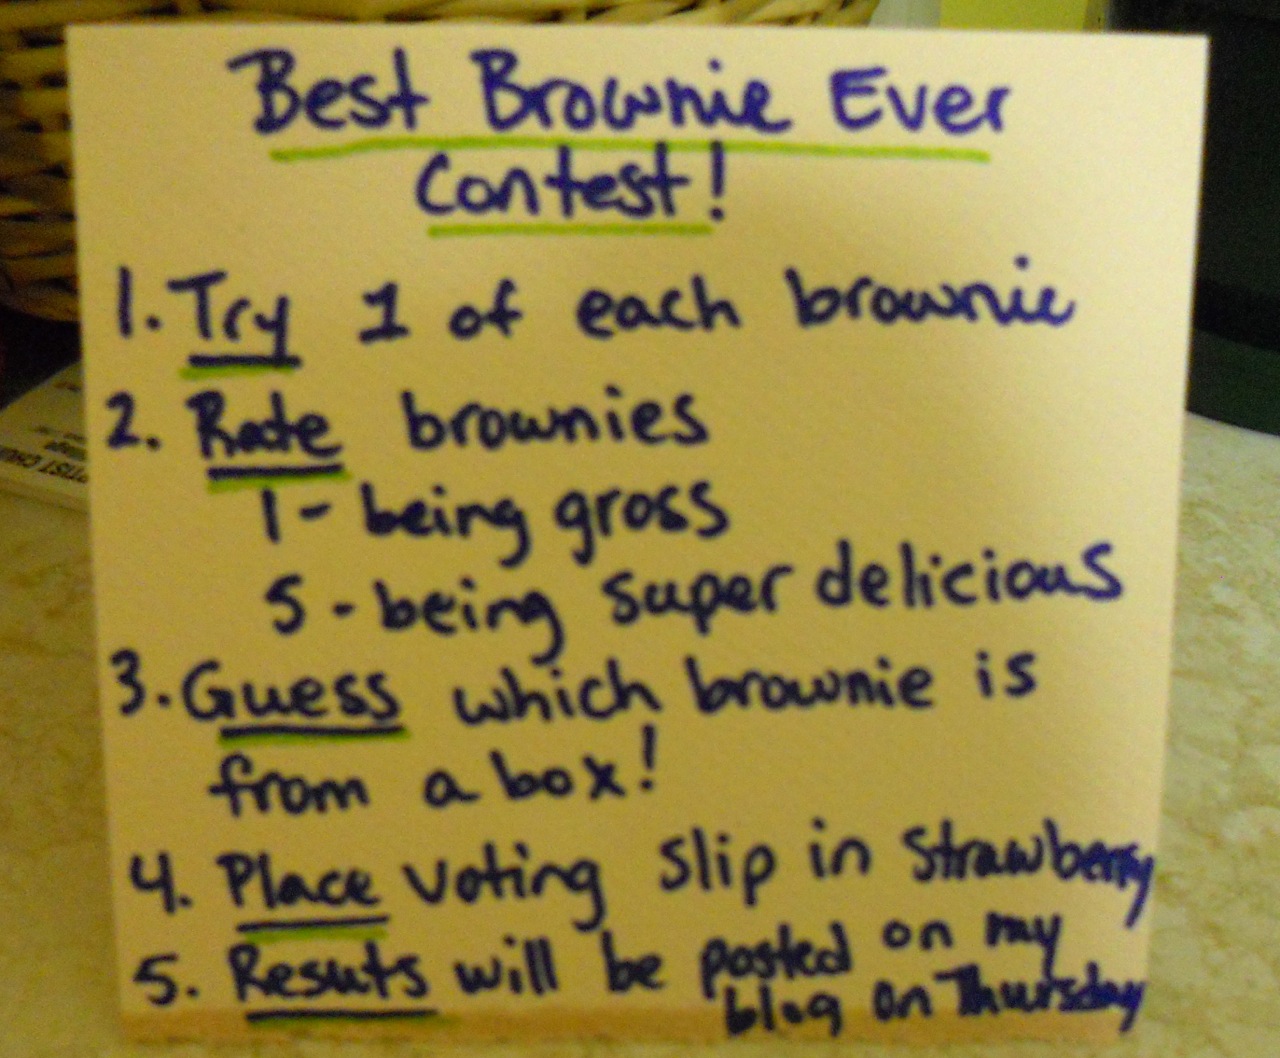 Best Brownie Ever
Contest!
1. Try 1 of each brownie
2. Rate brownies
1 - being gross
5 - being super delicious
3. Guess which brownie is
from a box!
4. Place voting slip in strawberry
5. Resuts will be posted on my
blog on Thursday